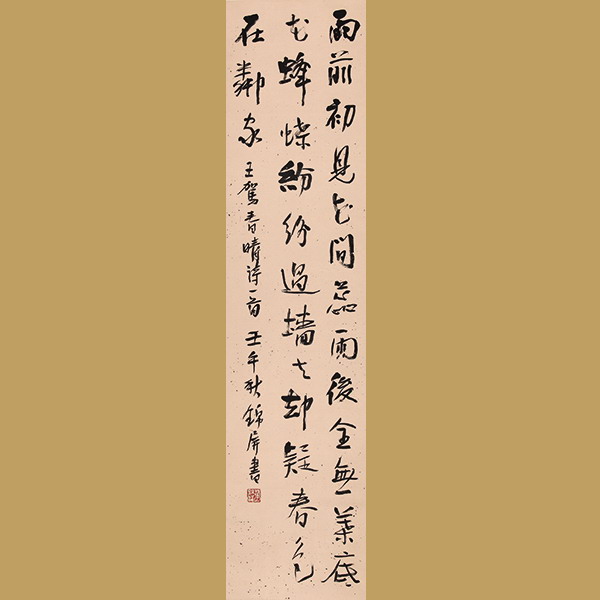 雨前初見花間蕊雨後全無葉底
花蜂蝶紛紛過墻去却疑春色
在鄰家 王駕春晴诗一首 壬午秋錦屏書